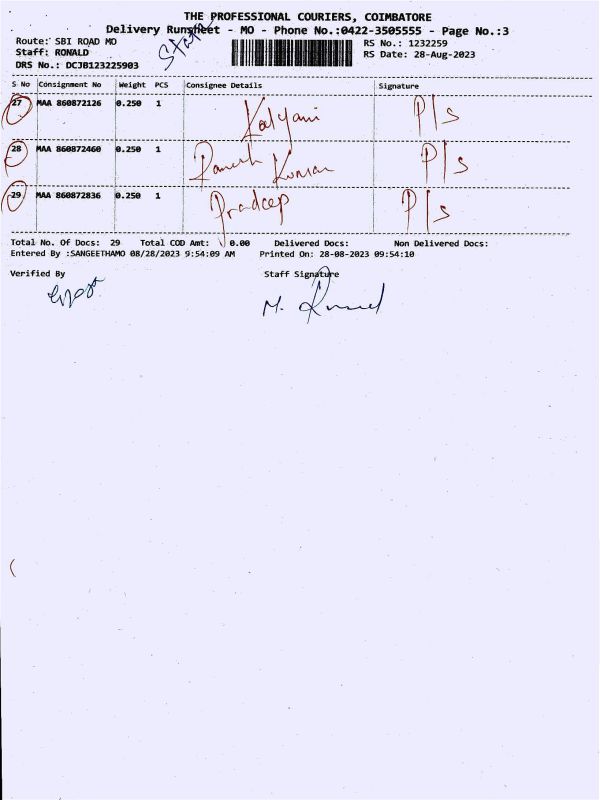 THE PROFESSIONAL COURIERS, COIMBATORE
Delivery Runsheet - MO - Phone No.:0422-3505555 - Page No.:3
Route: SBI ROAD MO
RS No.: 1232259
Staff: RONALD
RS Date: 28-Aug-2023
DRS No.: DCJB123225903
S No Consignment No Weight PCS Consignee Details Signature
27 MAA 860872126 0.250 1 Kalyani P/s
28 MAA 860872460 0.250 1 Ramesh Kumar P/s
29 MAA 860872836 0.250 1 Pradeep P/s
Total No. Of Docs: 29 Total COD Amt: 0.00 Delivered Docs: Non Delivered Docs:
Entered By :SANGEETHAMO 08/28/2023 9:54:09 AM Printed On: 28-08-2023 09:54:10
Verified By Staff Signature
M.